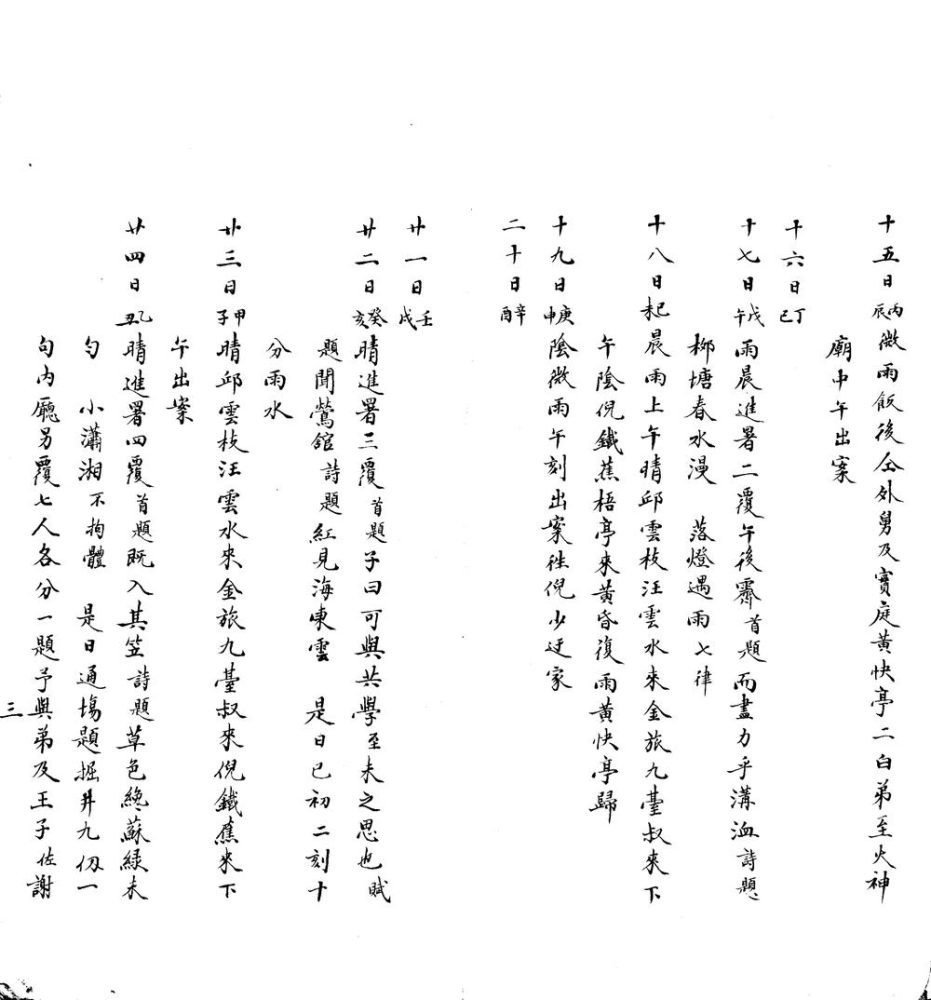 十五日丙辰微雨飯後仝外舅及寳庭黄快亭二白弟至火神
廟中午出案
十六日丁巳
十七日戊午雨晨進署二覆午後霽首題而盡力乎溝洫詩題
柳塘春水漫 落燈遇雨七律
十八日己未晨雨上午晴邱雲枝汪雲水來金旅九臺叔來下
午陰倪鐵蕉梧亭來黄昏復雨黄快亭歸
十九日庚申陰微雨午刻出案徃倪少迂家
二十日辛酉
廿一日壬戌
廿二日癸亥晴進署三覆首題子曰可與共學至未之思也賦
題聞鶯館詩題紅見海東雲 是日巳初二刻十
分雨水
廿三日甲子晴邱雲枝汪雲水來金旅九臺叔來倪鐵蕉來下
午出案
廿四日乙丑晴進署四覆首題既入其笠詩題草色纔蘇緑未
勻 小瀟湘不拘體 是日通塲題掘井九仭一
句内廳另覆七人各分一題予與弟及王子佐謝
三